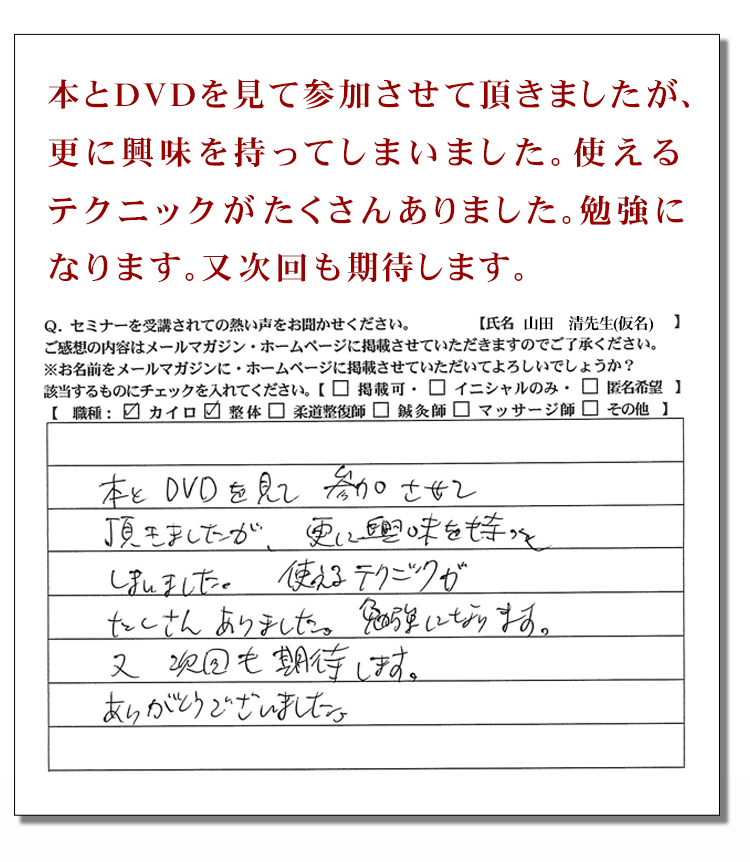 本とDVDを見て参加させて頂きましたが、
更に興味を持ってしまいました。使える
テクニックがたくさんありました。勉強に
なります。又次回も期待します。
Q. セミナーを受講されての熱い声をお聞かせください。 【氏名 山田 清先生(仮名) 】
ご感想の内容はメールマガジン・ホームページに掲載させていただきますのでご了承ください。
※お名前をメールマガジンに・ホームページに掲載させていただいてよろしいでしょうか?
該当するものにチェックを入れてください。【 □ 掲載可・ □ イニシャルのみ・ □ 匿名希望 】
【 職種: ☑ カイロ ☑ 整体 □ 柔道整復師 □ 鍼灸師 □ マッサージ師 □ その他 】
本と DVDを見て 参加させて
頂きましたが、更に興味を持って
しまいました。 使えるテクニックが
たくさん ありました。勉強になります。
又 次回も期待します。
ありがとうございました。